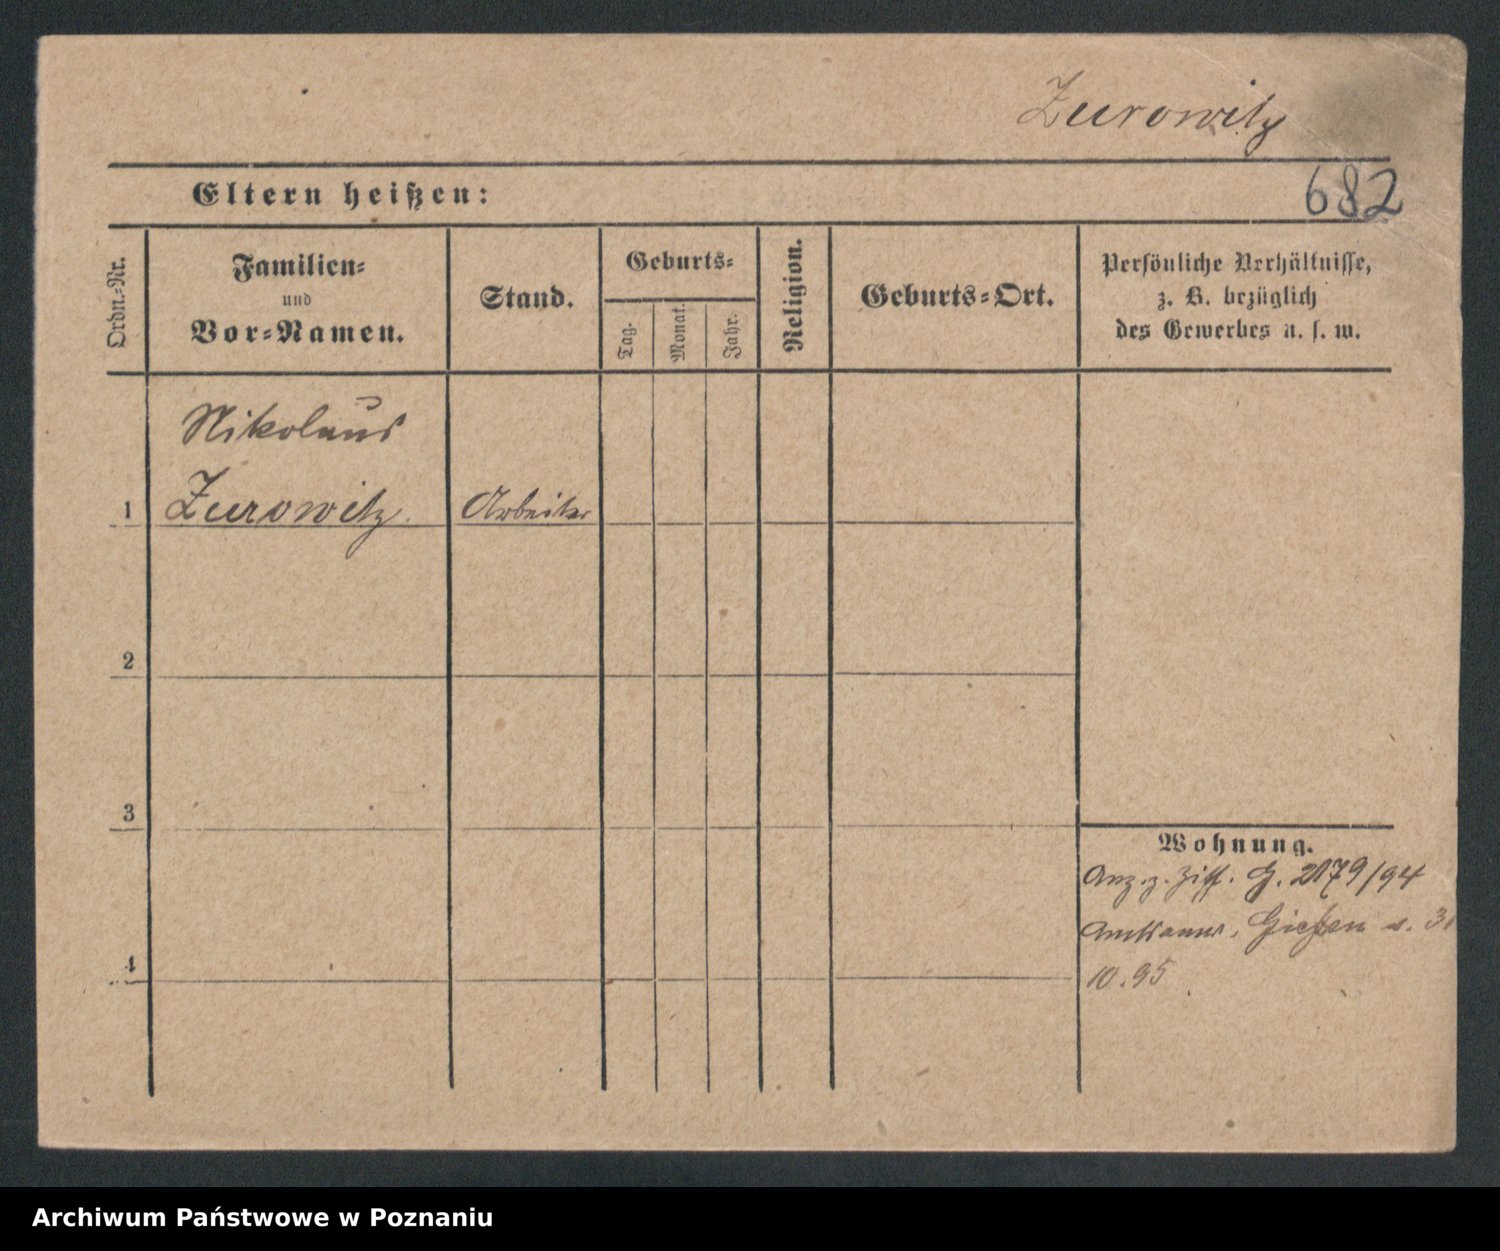 Zurowitz
682
Eltern heißen:
Ordn.-Nr.
Familien-
und
Vor-Namen.
Stand.
Geburts-
Tag.
Monat.
Jahr.
Religion.
Geburts-Ort.
Persönliche Verhältnisse,
z. B. bezüglich
des Gewerbes u. s. w.
Nikolaus
1 Zurowitz Arbeiter
2
3
4
Wohnung.
Anz. z. Ziff. G. 2179/94
Amtsanw. Gießen v. 31
10.95
Archiwum Państwowe w Poznaniu